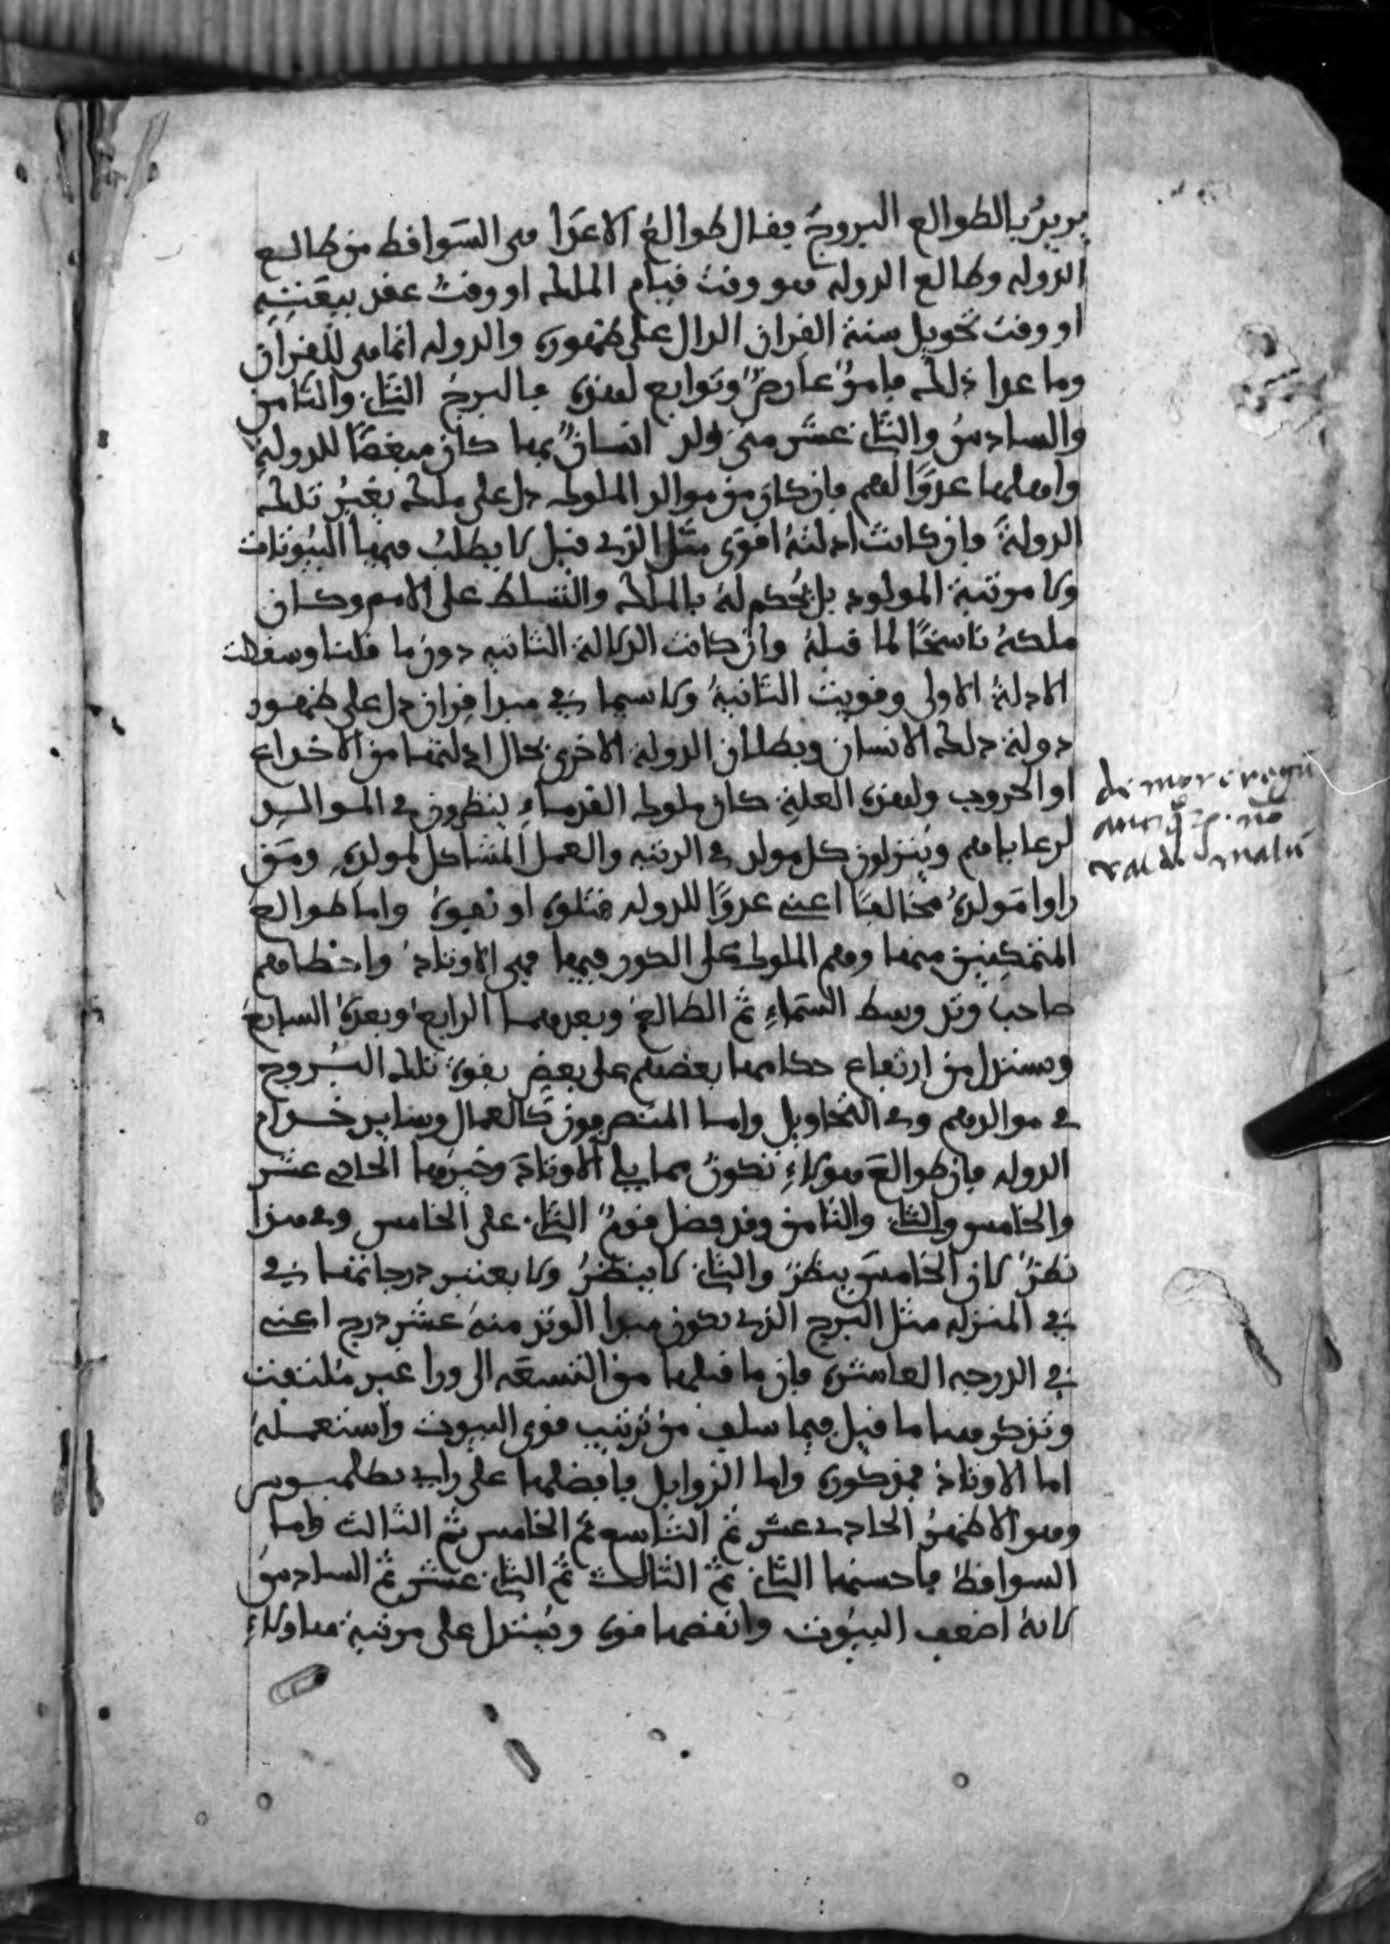 يريد بالطوالع البروج فقال طوالع الاعدا هى السواقط من طالع
الدوله وطالع الدوله هو وقت قيام الملك او وقت عقد بيعته
او وقت تحويل سنة القران الدال على ظهوره والدوله انما هى للقران
وما عدا ذلك فامور عارض وتوابع لهذه فالبرج الثانى والثامن
والسادس والثانى عشر متى ولد انسان بها كان مبغضا للدولة
واهلها عدوا لهم فان كان من موالد الملوك دل على ملك بغير تلك
الدولة فان كانت ادلته اقوى مثل الذى قيل لا يطلب فيها البيوتات
ولا مرتبة المولود بل يحكم له بالملك والتسلط على الامم وكان
ملكه ناسخا لما قبله وان كانت الدلالة الثانيه دون ما قلنا وسقطت
الادلة الاولى وقويت الثانية ولا سيما فى مبدا قران دل على ظهور
دولة ذلك الانسان وبطلان الدولة الاخرى بحال ادلتها من الاخداع
او الحروب ولهذه العلة كان ملوك القدماء ينظرون فى المواليد
لرعاياهم وينزلون كل مولد فى الرتبه والعمل المشاكل لمولده ومتى
راوا مولده مخالفا اعنى عدوا للدوله قتلوه او نفوه واما طوالع
المتمكنين منها وهم الملوك على الدور فيها فهى الاوتاد واحظاهم
صاحب وتد وسط السماء ثم الطالع وبعدهما الرابع وبعده السابع
ويستدل من ارتفاع حكامها بعضهم على بعض بقوة تلك البروج
فى موالدهم وفى التحاويل واما المتصرفون كالعمال وساير خدام
الدوله فان طوالع هولاء تكون مما يلى الاوتاد وخيرها الحادى عشر
والخامس والثانى والثامن وقد فضل قوم الثانى على الخامس وفى هذا
نظر لان الخامس ينظر والثانى لا ينظر ولا يعتبر درجاتها فى
فى المنزله مثل البرج الذى يكون مبدا الوتد منه عشر درج اعنى
فى الدرجه العاشره فان ما قبلها من التسعه الى ورا غير ملتفت
وتذكر هنا ما قيل فيما سلف من ترتيب قوى البيوت واستعمله
اما الاوتاد فمذكوره واما الزوايل فافضلها على راى بطلميوس
وهو الاظهر الحادى عشر ثم التاسع ثم الخامس ثم الثالث واما
السواقط فاحسنها الثانى ثم الثالث ثم الثانى عشر ثم السادس
لانه اضعف البيوت وانقصها قوه ويستدل على مرتبة هاولاء
de more regu
valde malu